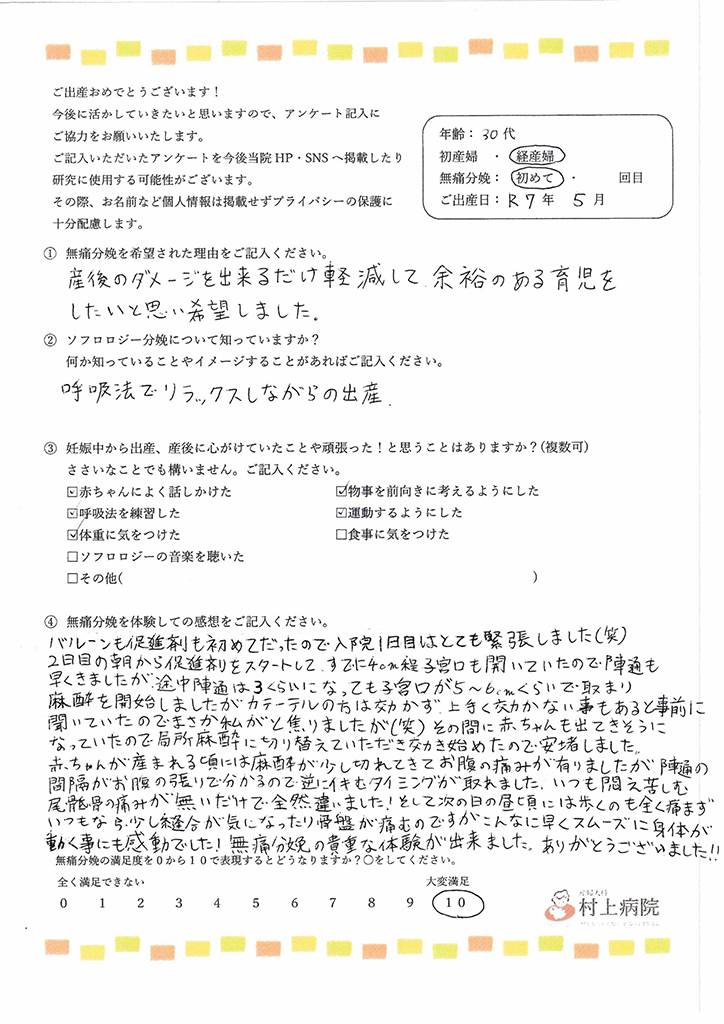 ご出産おめでとうございます！
今後に活かしていきたいと思いますので、アンケート記入に
ご協力をお願いいたします。
ご記入いただいたアンケートを今後当院 HP・SNS へ掲載したり
研究に使用する可能性がございます。
その際、お名前など個人情報は掲載せずプライバシーの保護に
十分配慮します。
年齢：30代
初産婦 ・ 経産婦
無痛分娩：初めて・ 回目
ご出産日：R7年 5月
① 無痛分娩を希望された理由をご記入ください。
産後のダメージを出来るだけ軽減して、余裕のある育児を
したいと思い希望しました。
② ソフロロジー分娩について知っていますか？
何か知っていることやイメージすることがあればご記入ください。
呼吸法でリラックスしながらの出産.
③ 妊娠中から出産、産後に心がけていたことや頑張った！と思うことはありますか？(複数可)
ささいなことでも構いません。ご記入ください。
☑赤ちゃんによく話しかけた ☑物事を前向きに考えるようにした
☑呼吸法を練習した ☑運動するようにした
☑体重に気をつけた □食事に気をつけた
□ソフロロジーの音楽を聴いた
□その他( )
④ 無痛分娩を体験しての感想をご記入ください。
バルーンも促進剤も初めてだったので入院1日目はとても緊張しました(笑)
2日目の朝から促進剤をスタートして、すでに4cm程子宮口も開いていたので陣通も
早くきましたが、途中陣通は3くらいになっても子宮口が5～6cmくらいで取まり
麻酔を開始しましたがカテーテルの方は効かず、上手く効かない事もあると事前に
聞いていたのでまさか私がと焦りましたが(笑) その間に赤ちゃんも出てきそうに
なっていたので局所麻酔に切り替えていただき効き始めたので安堵しました。
赤ちゃんが産まれる頃には麻酔が少し切れてきてお腹の痛みが有りましたが陣通の
間隔がお腹の張りで分かるので逆にイキむタイミングが取れました. いつも悶え苦しむ
尾骶骨の痛みが無いだけで全然違いました！そして次の日の昼頃には歩くのも全く痛まず
いつもなら少し縫合が気になったり骨盤が痛むのですがこんなに早くスムーズに身体が
動く事にも感動でした！無痛分娩の貴重な体験が出来ました。ありがとうございました!!
無痛分娩の満足度を0から10で表現するとどうなりますか？○をしてください。
全く満足できない 大変満足
0 1 2 3 4 5 6 7 8 9 10
産婦人科
村上病院